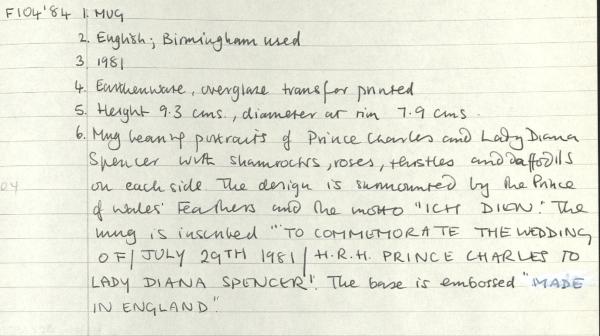 F104'84 1. MUG
2. English; Birmingham used
3. 1981
4. Earthenware, overglaze transfer printed
5. Height 9.3 cms., diameter at rim 7.9 cms.
6. Mug bearing portraits of Prince Charles and Lady Diana
Spencer with shamrocks, roses, thistles and daffodils
on each side The design is surmounted by the Prince
of Wales' Feathers and the motto "ICH DIEN." The
mug is inscribed "TO COMMEMORATE THE WEDDING
OF / JULY 29TH 1981 / H.R.H. PRINCE CHARLES TO
LADY DIANA SPENCER". The base is embossed "MADE
IN ENGLAND".